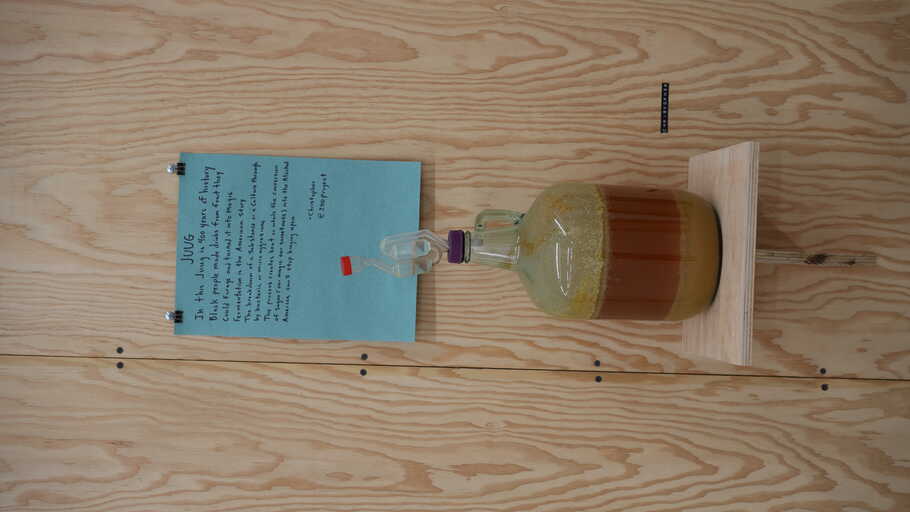 JUUG
In this Juug is 400 years of history
Black people made drinks from fruit they
Could Forage and turned it into Magic
Fermentation is the American story
The breakdown of a Substance or a Culture through
by bacteria or micro aggressions
The process creates heat as while the conversion
of sugar (our magic our sweetness) into the Alcohol
America can't stop binging upon
- Christopher
CHRISTOPHER